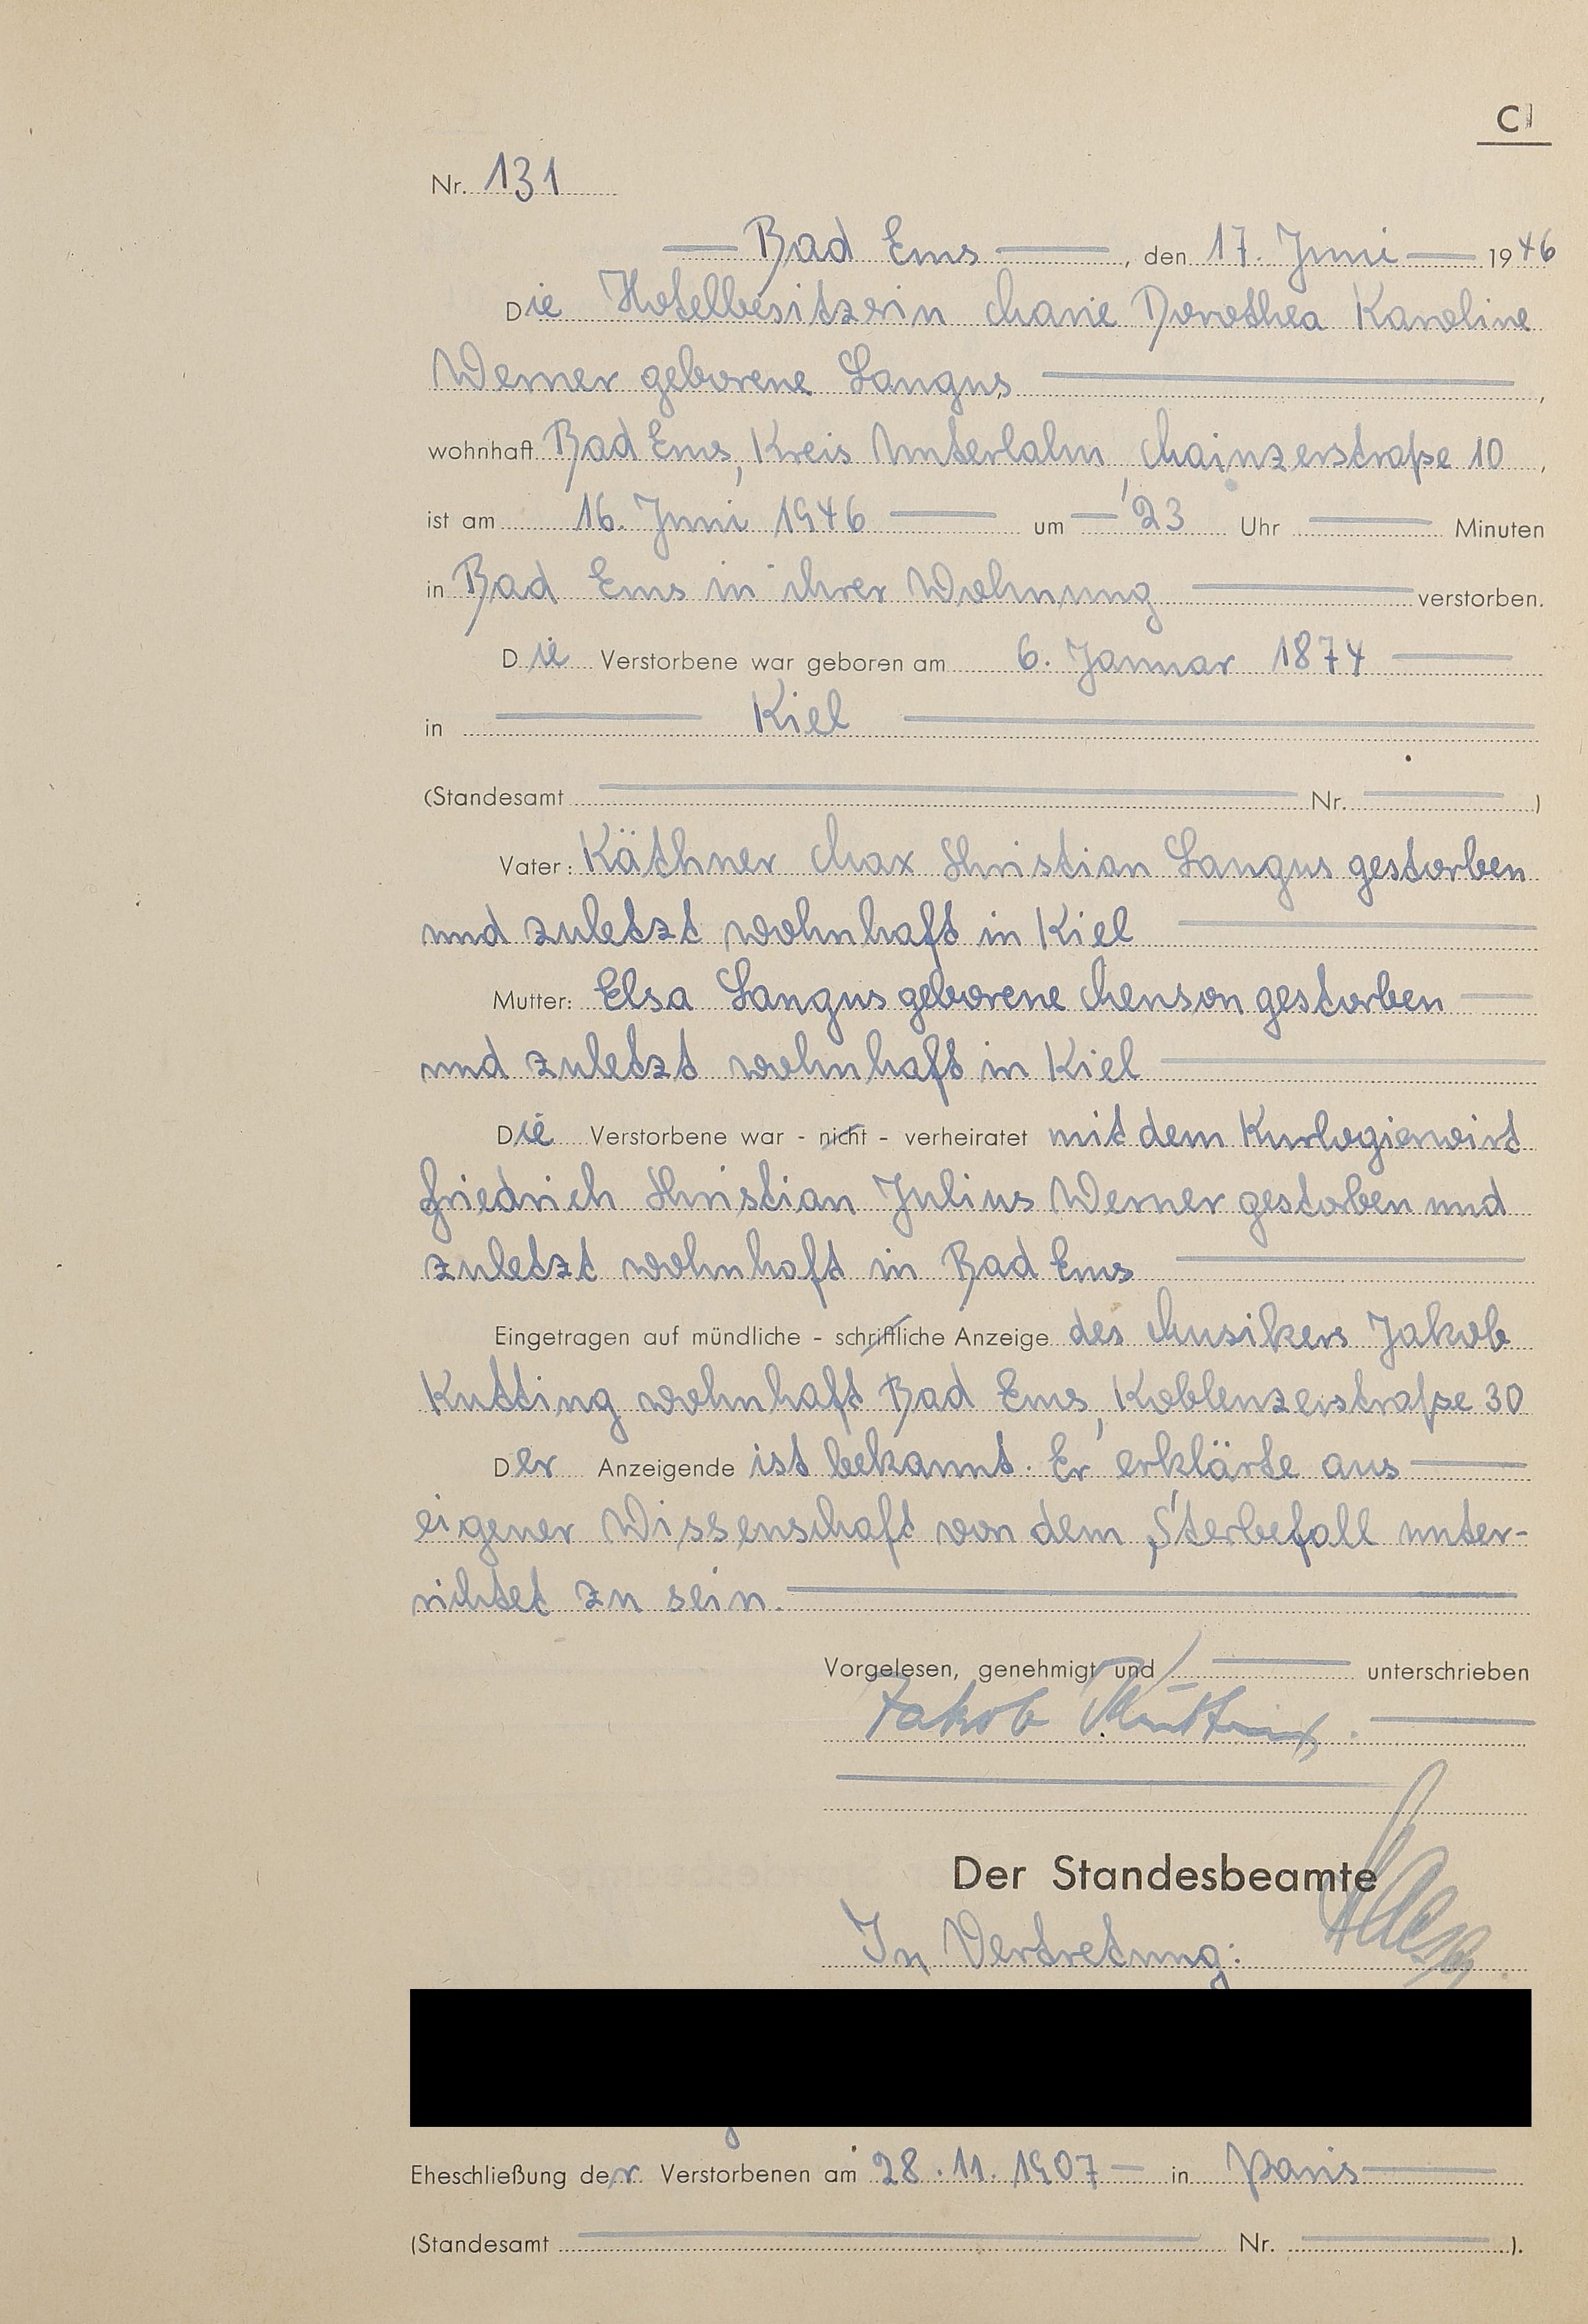 C
Nr. 131
Bad Ems, den 17. Juni 1946
Die Hotelbesitzerin Marie Dorothea Karoline
Werner geborene Langus,
wohnhaft Bad Ems, Kreis Unterlahn, Mainzerstraße 10,
ist am 16. Juni 1946 um 23 Uhr Minuten
in Bad Ems in ihrer Wohnung verstorben.
Die Verstorbene war geboren am 6. Januar 1874
in Kiel
(Standesamt Nr. )
Vater: Käthner Max Christian Langus gestorben
und zuletzt wohnhaft in Kiel
Mutter: Elsa Langus geborene Menson gestorben
und zuletzt wohnhaft in Kiel
Die Verstorbene war - nicht - verheiratet mit dem Kurlogierwirt
Friedrich Christian Julius Werner gestorben und
zuletzt wohnhaft in Bad Ems
Eingetragen auf mündliche - schriftliche Anzeige des Musikers Jakob
Kutting wohnhaft Bad Ems, Koblenzerstraße 30
Der Anzeigende ist bekannt. Er erklärte aus
eigener Wissenschaft von dem Sterbefall unter-
richtet zu sein.
Vorgelesen, genehmigt und unterschrieben
Jakob Kutting.
Der Standesbeamte
In Vertretung:
Eheschließung der Verstorbenen am 28.11.1907 in Paris
(Standesamt Nr. ).